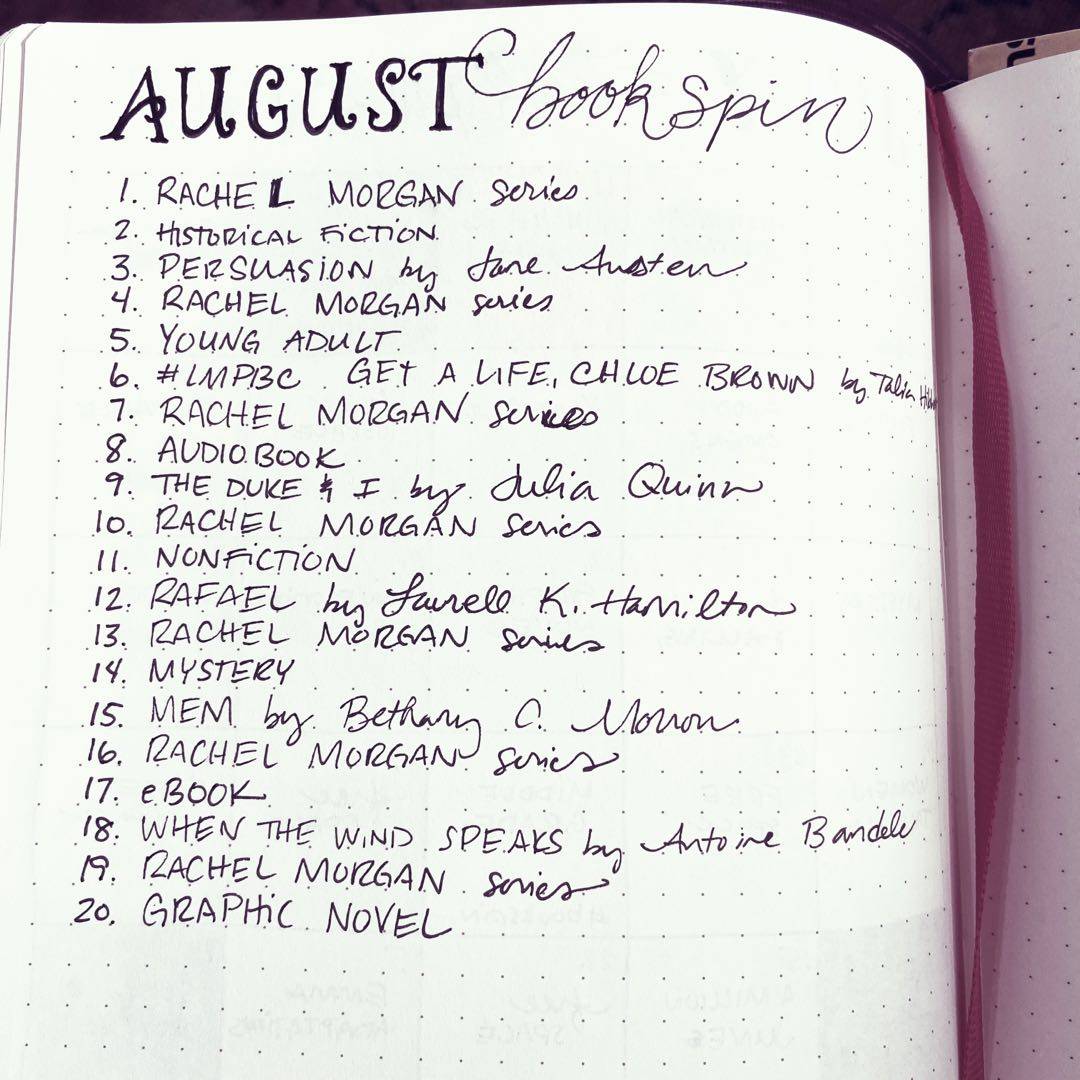 AUGUST bookspin
1. RACHEL MORGAN series
2. HISTORICAL FICTION
3. PERSUASION by Jane Austen
4. RACHEL MORGAN series
5. YOUNG ADULT
6. #LMPBC GET A LIFE, CHLOE BROWN by Talia
7. RACHEL MORGAN series
8. AUDIOBOOK
9. THE DUKE & I by Julia Quinn
10. RACHEL MORGAN series
11. NONFICTION
12. RAFAEL by Laurell K. Hamilton
13. RACHEL MORGAN series
14. MYSTERY
15. MEM by Bethany C. Morrow
16. RACHEL MORGAN series
17. eBOOK
18. WHEN THE WIND SPEAKS by Antoine Bandele
19. RACHEL MORGAN series
20. GRAPHIC NOVEL